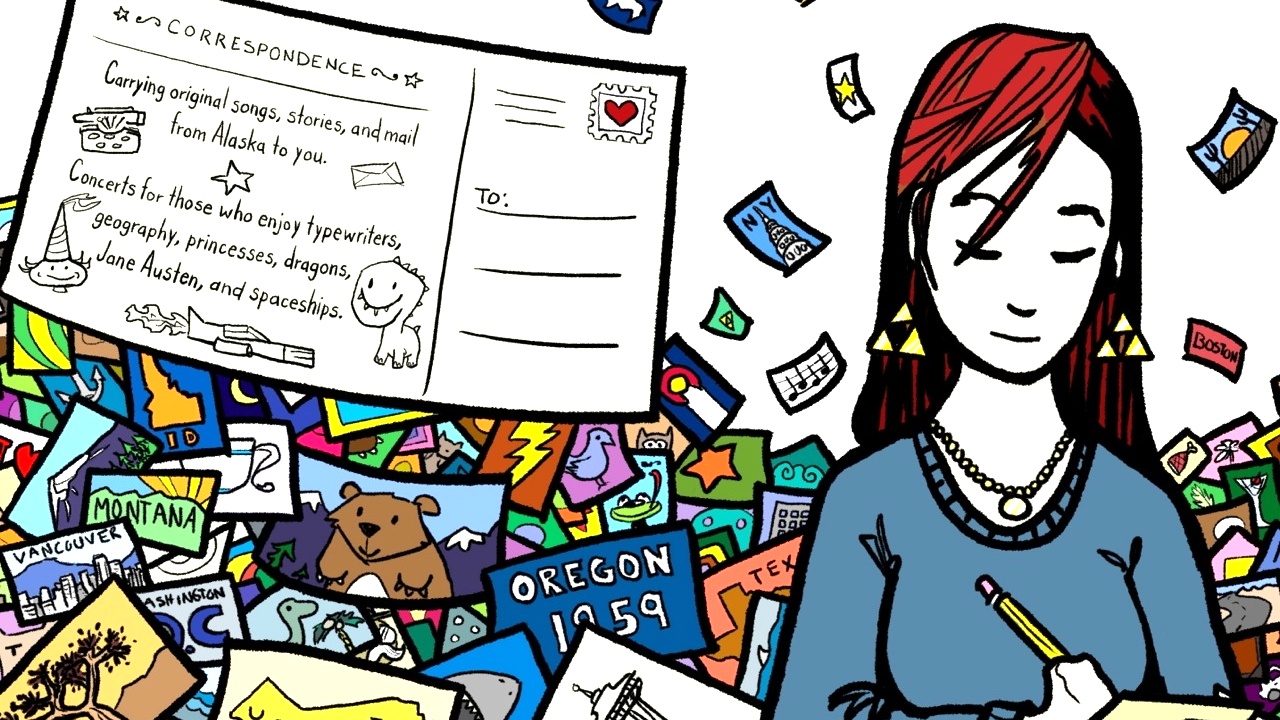 CORRESPONDENCE
Carrying original songs, stories, and mail
from Alaska to you.
Concerts for those who enjoy typewriters,
geography, princesses, dragons,
Jane Austen, and spaceships.
TO:
NY
BOSTON
ID
MONTANA
VANCOUVER
OREGON
1959
TEX